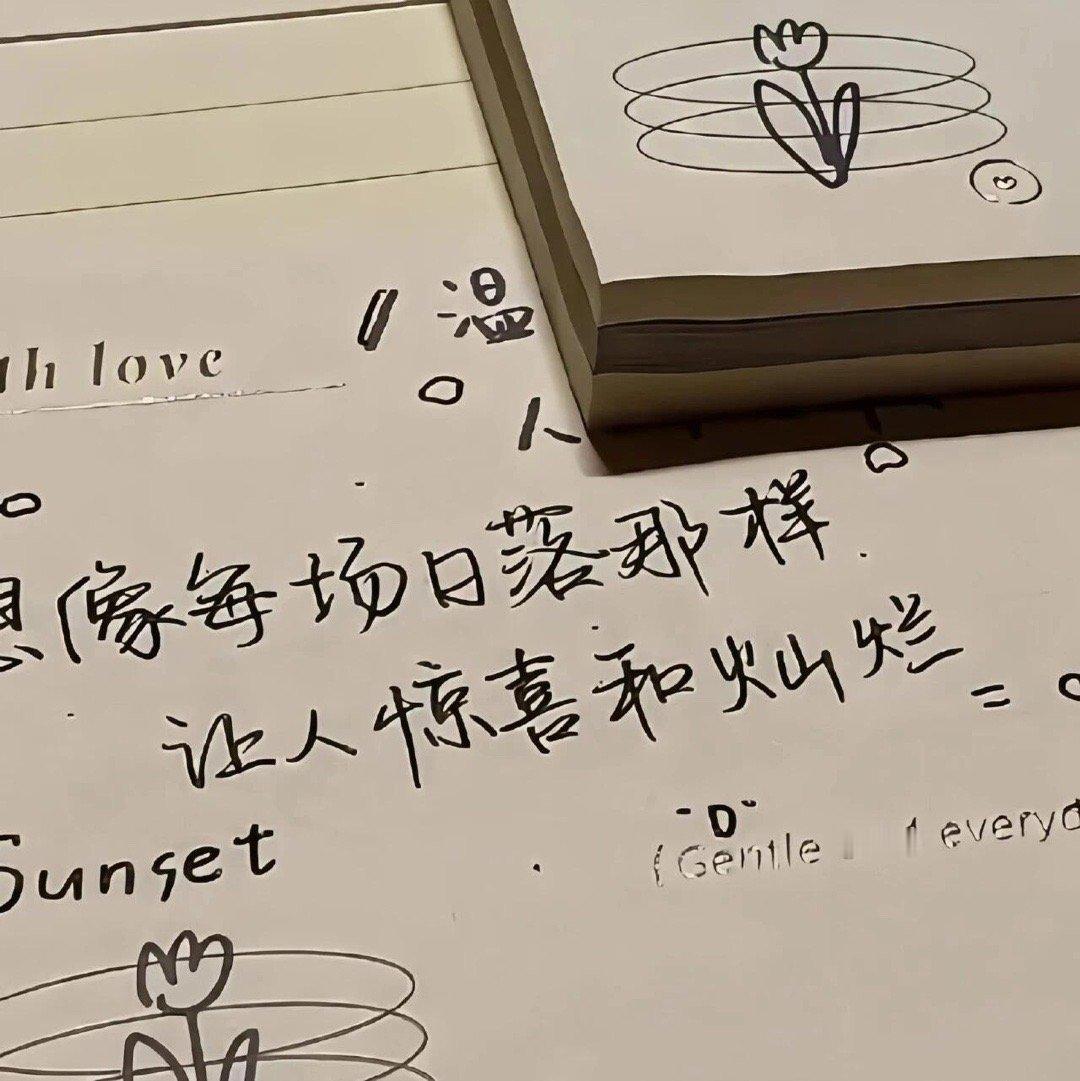 love
温
人
想像每场日落那样
让人惊喜和灿烂
Sunset
Gentle